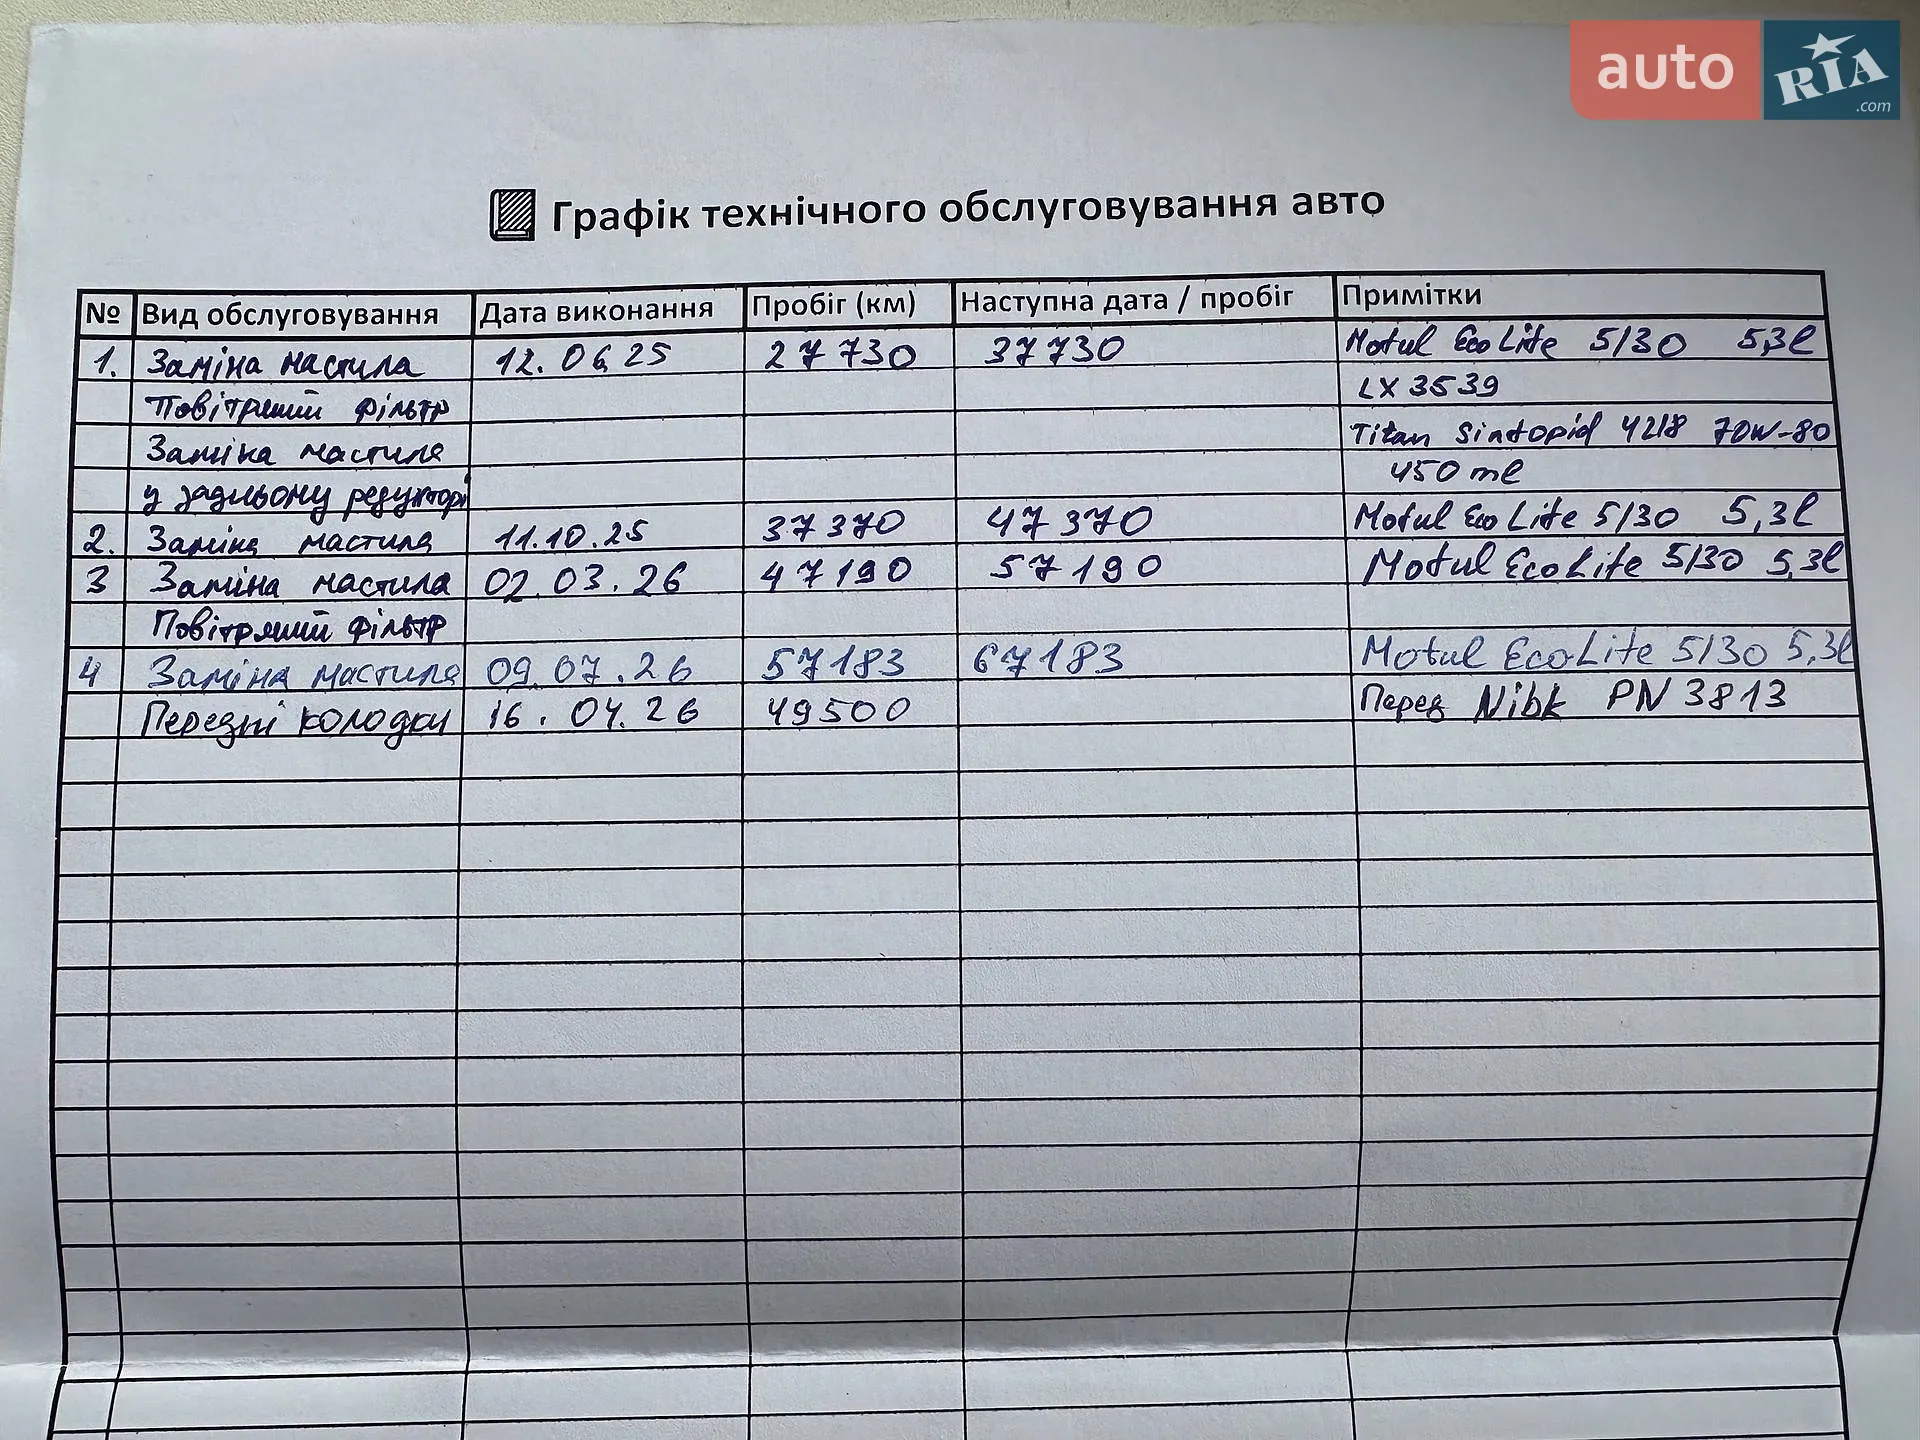 auto RIA .com
Графік технічного обслуговування авто
№ Вид обслуговування Дата виконання Пробіг (км) Наступна дата / пробіг Примітки
1. Заміна мастила 12.06.25 27730 37730 Motul Eco Lite 5/30 5,3l
Повітряний фільтр LX 3539
Заміна мастила Titan Sintopid 4218 70W-80
у задньому редукторі 450 ml
2. Заміна мастила 11.10.25 37370 47370 Motul Eco Lite 5/30 5,3l
3 Заміна мастила 02.03.26 47190 57190 Motul Eco Lite 5/30 5,3l
Повітряний фільтр
4 Заміна мастила 09.07.26 57183 67183 Motul Eco Lite 5/30 5,3l
Передні колодки 16.04.26 49500 Перед Nibk PN 3813